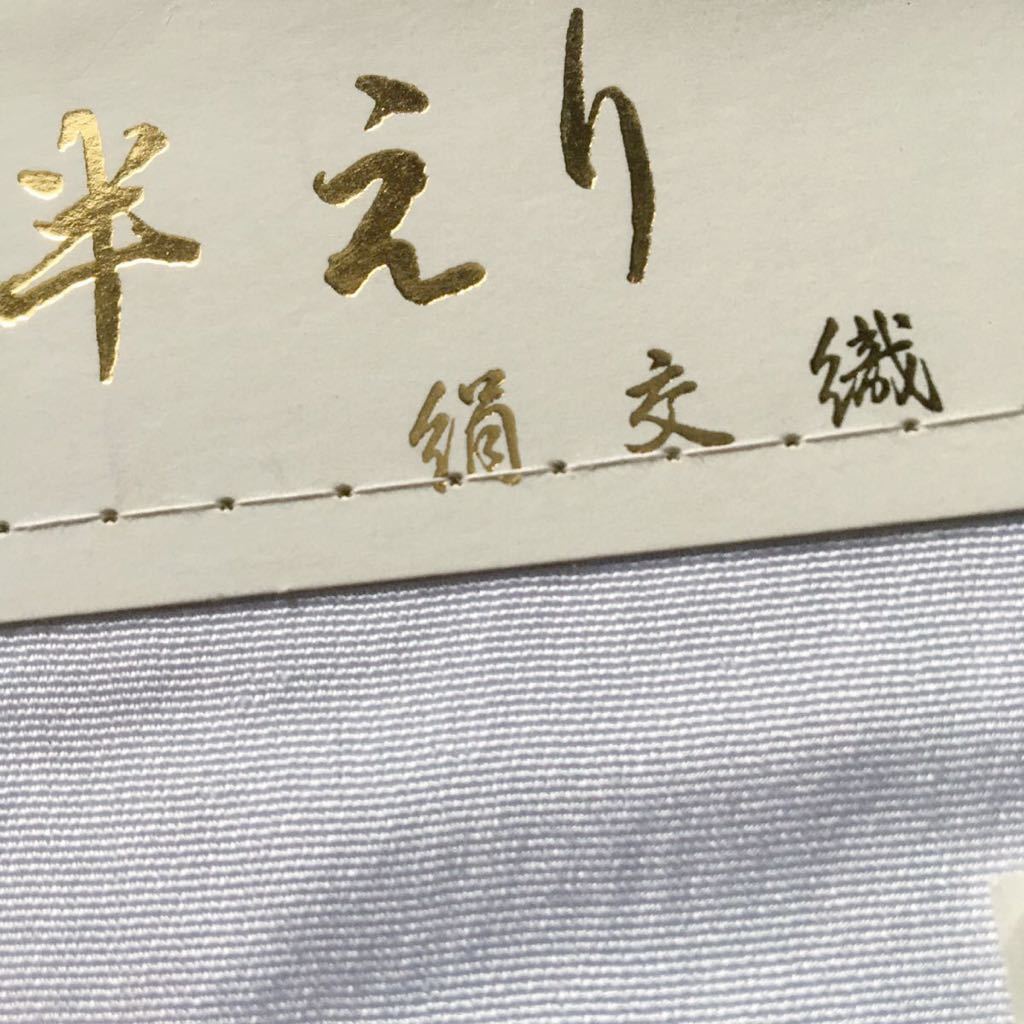 半えり
絹交織